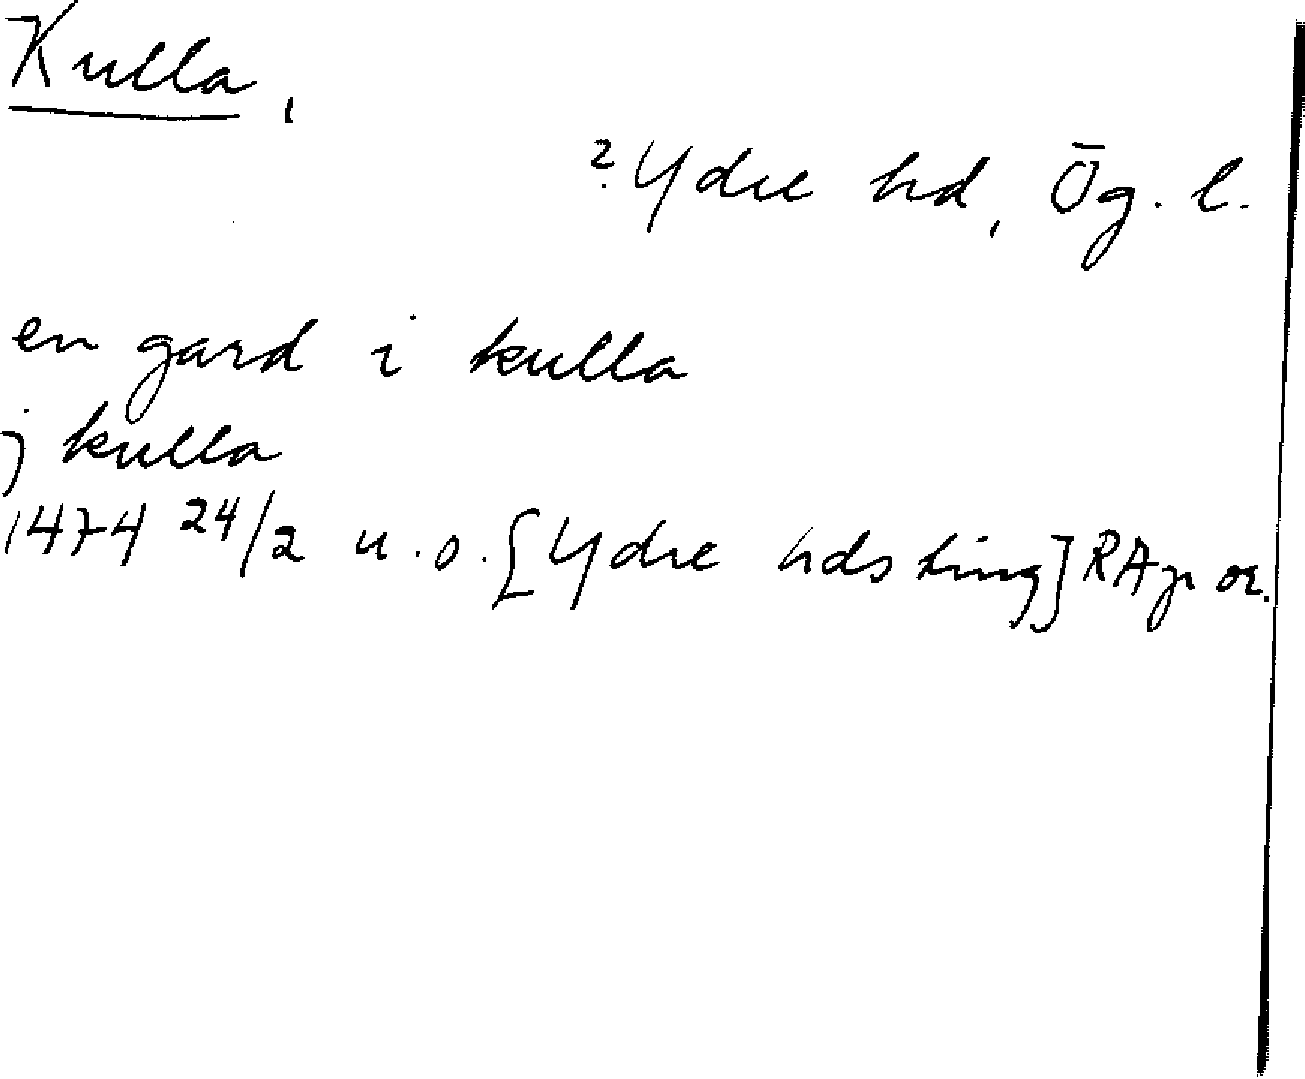 Kulla,
? Ydre hd, Ög. l.
en gard i kulla
j kulla
1474 24/2 u.o. [Ydre hds ting] RAp or.